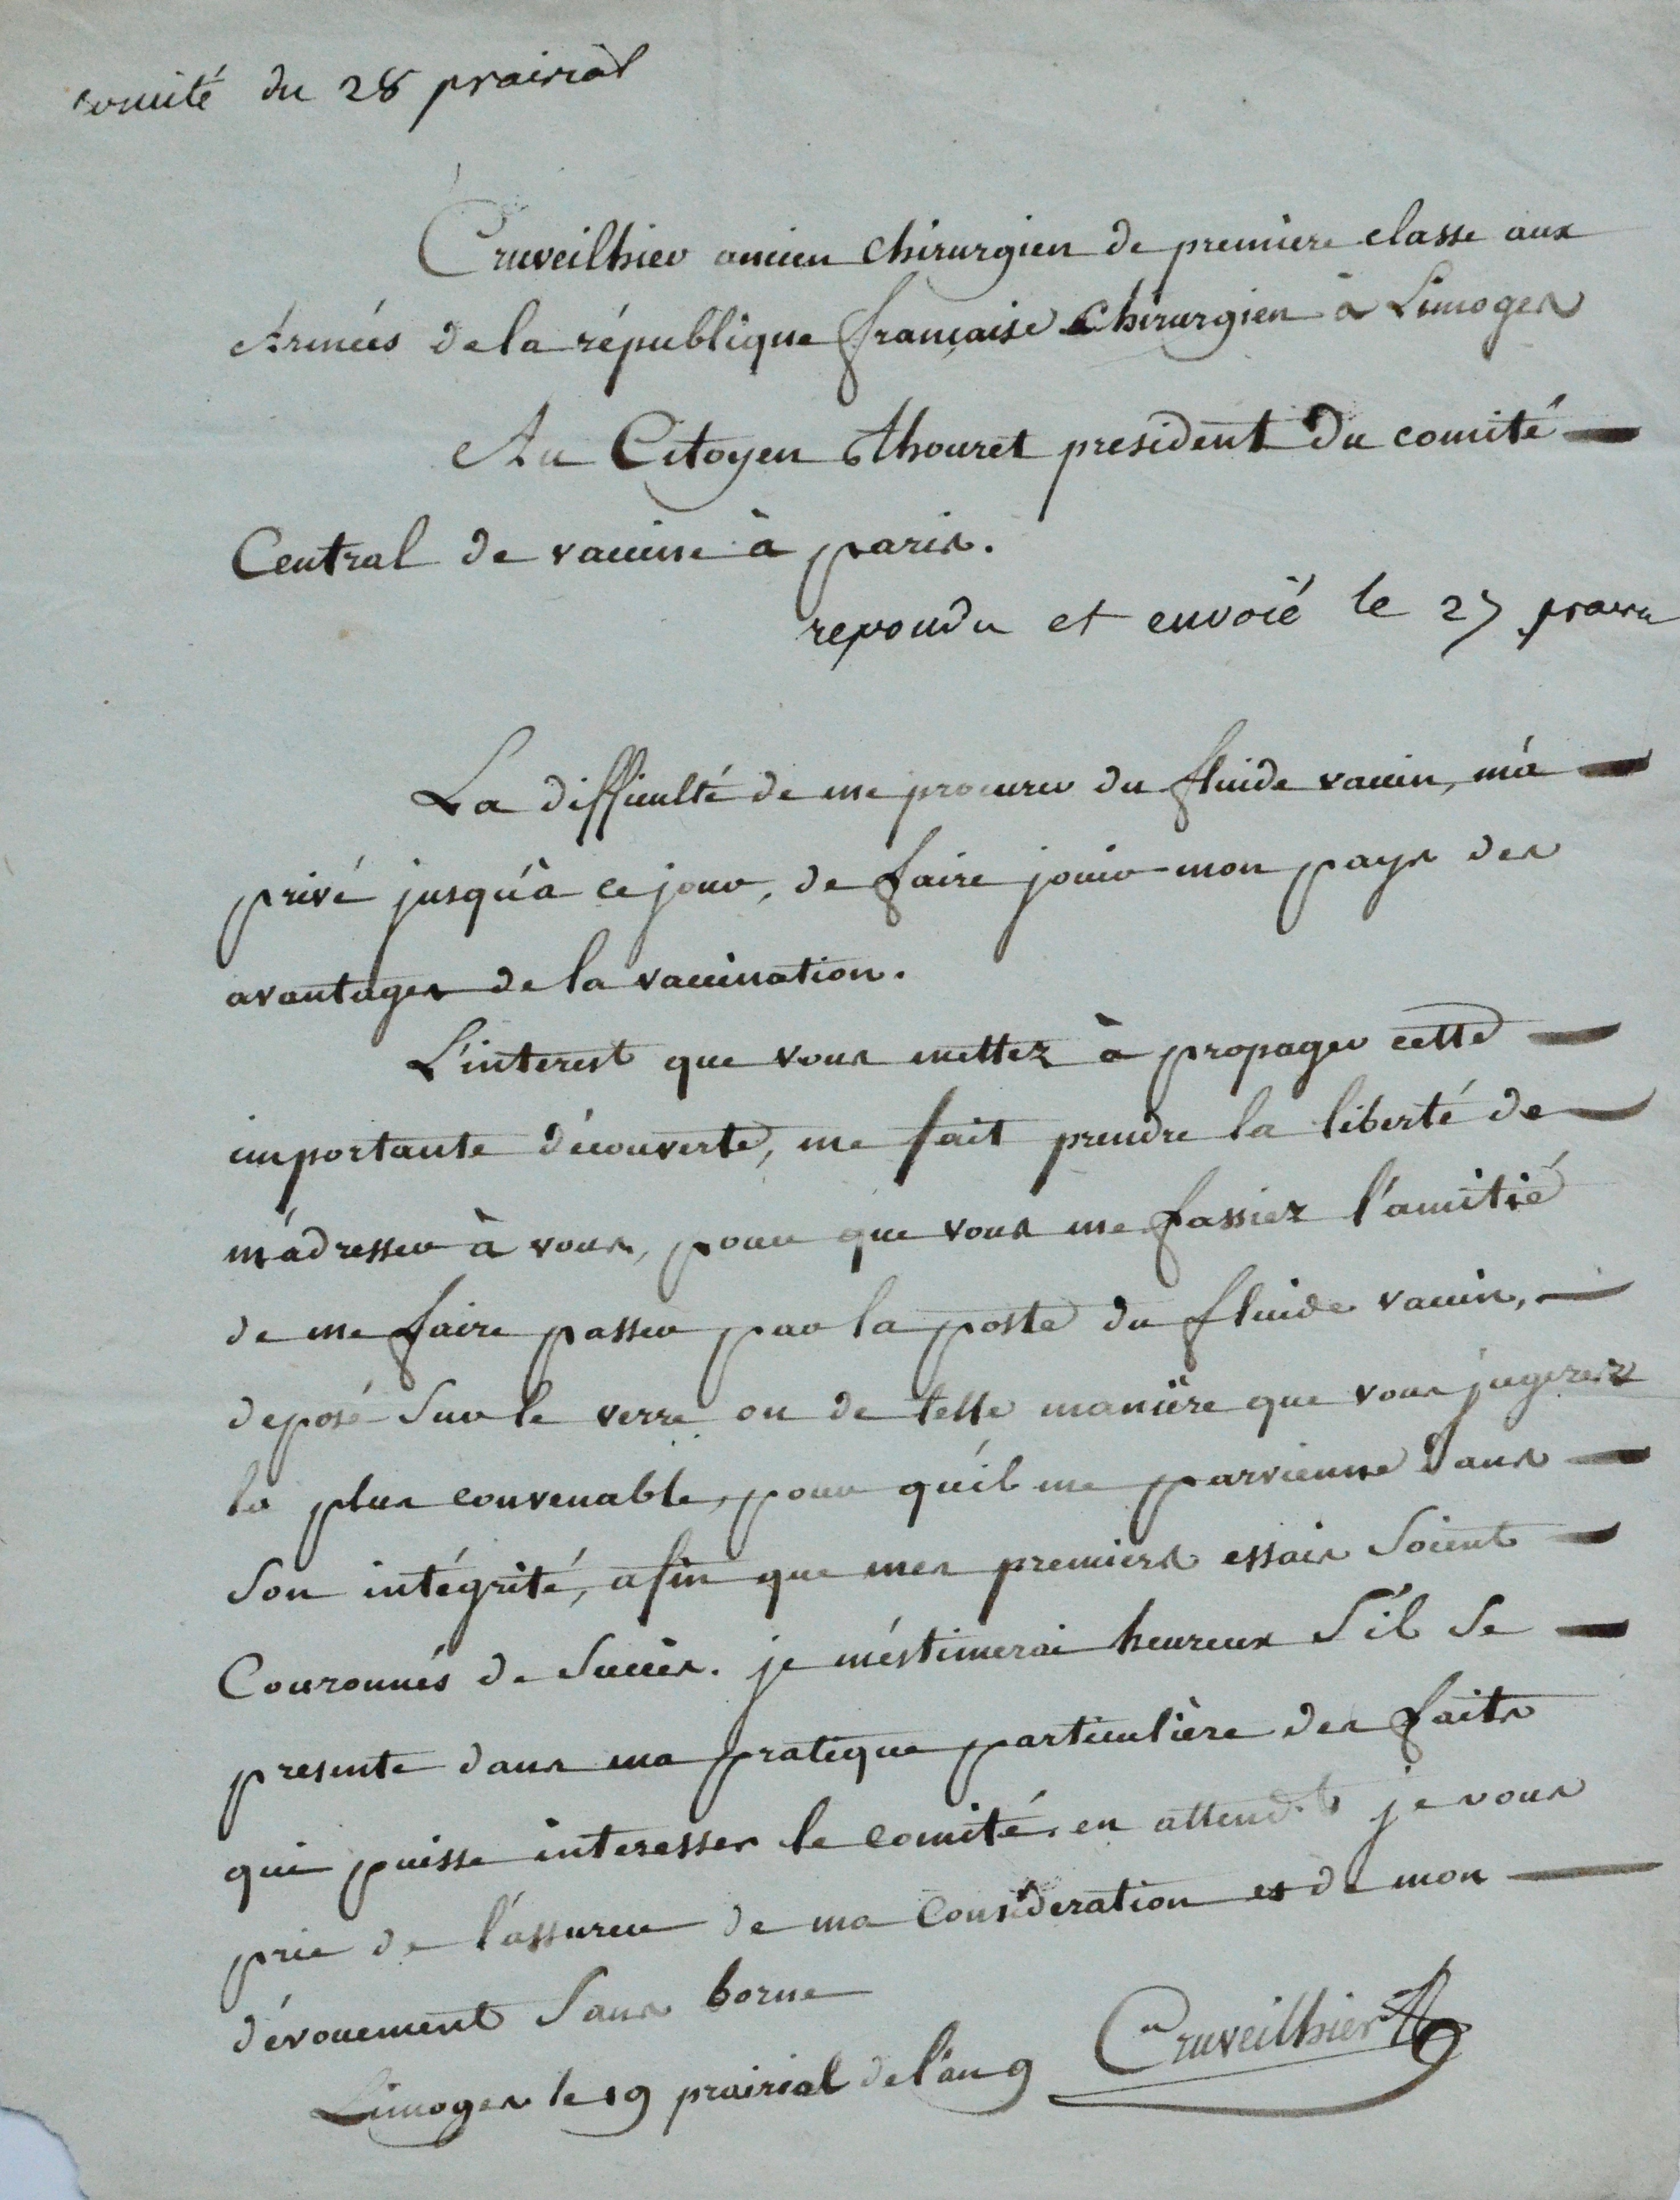 comité du 28 prairial
Cruveilhier ancien chirurgien de premiere classe aux
Armées de la république française chirurgien à Limoges
Au Citoyen thouret president du comité
Central de vaccine à paris.
repondu et envoié le 27 prairial
La difficulté de me procurer du fluide vaccin, m'a
privé jusqu'à ce jour, de faire jouir mon pays des
avantages de la vaccination.
L'interest que vous mettez à propager cette
importante découverte, me fait prendre la liberté de
m'adresser à vous, pour que vous me fassiez l'amitié
de me faire passer par la poste du fluide vaccin,
deposé sur le verre ou de telle manière que vous jugerez
la plus convenable, pour qu'il me parvienne dans
son intégrité, afin que mes premiers essais soient
Couronnés de succès. je m'éstimerai heureux s'il se
presente dans ma pratique particulière des faits
qui puisse interesser le comité. en attend.t je vous
prie de l'assurer de ma consideration et de mon
dévouement sans borne
Limoges le 19 prairial de l'an 9 Cruveilhier